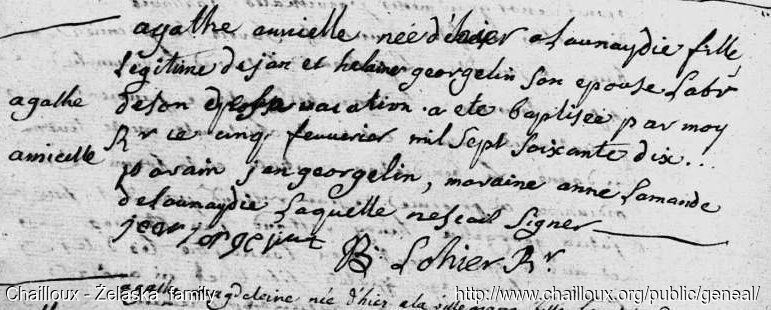 agathe amicelle née d'hier a Launaydie fille
legitime de jan et helaine georgelin son epouse Labr
de son vacation a ete baptisée par moy
Rr ce cinq fevverier mil sept soixante dix...
parain jan georgelin, maraine anne Lamande
de Launaydie Laquelle ne scait signer
agathe
amicelle
B Lohier Rr.
née d'hier a la ville
Chailloux - Żelaska family
http://www.chailloux.org/public/geneal/